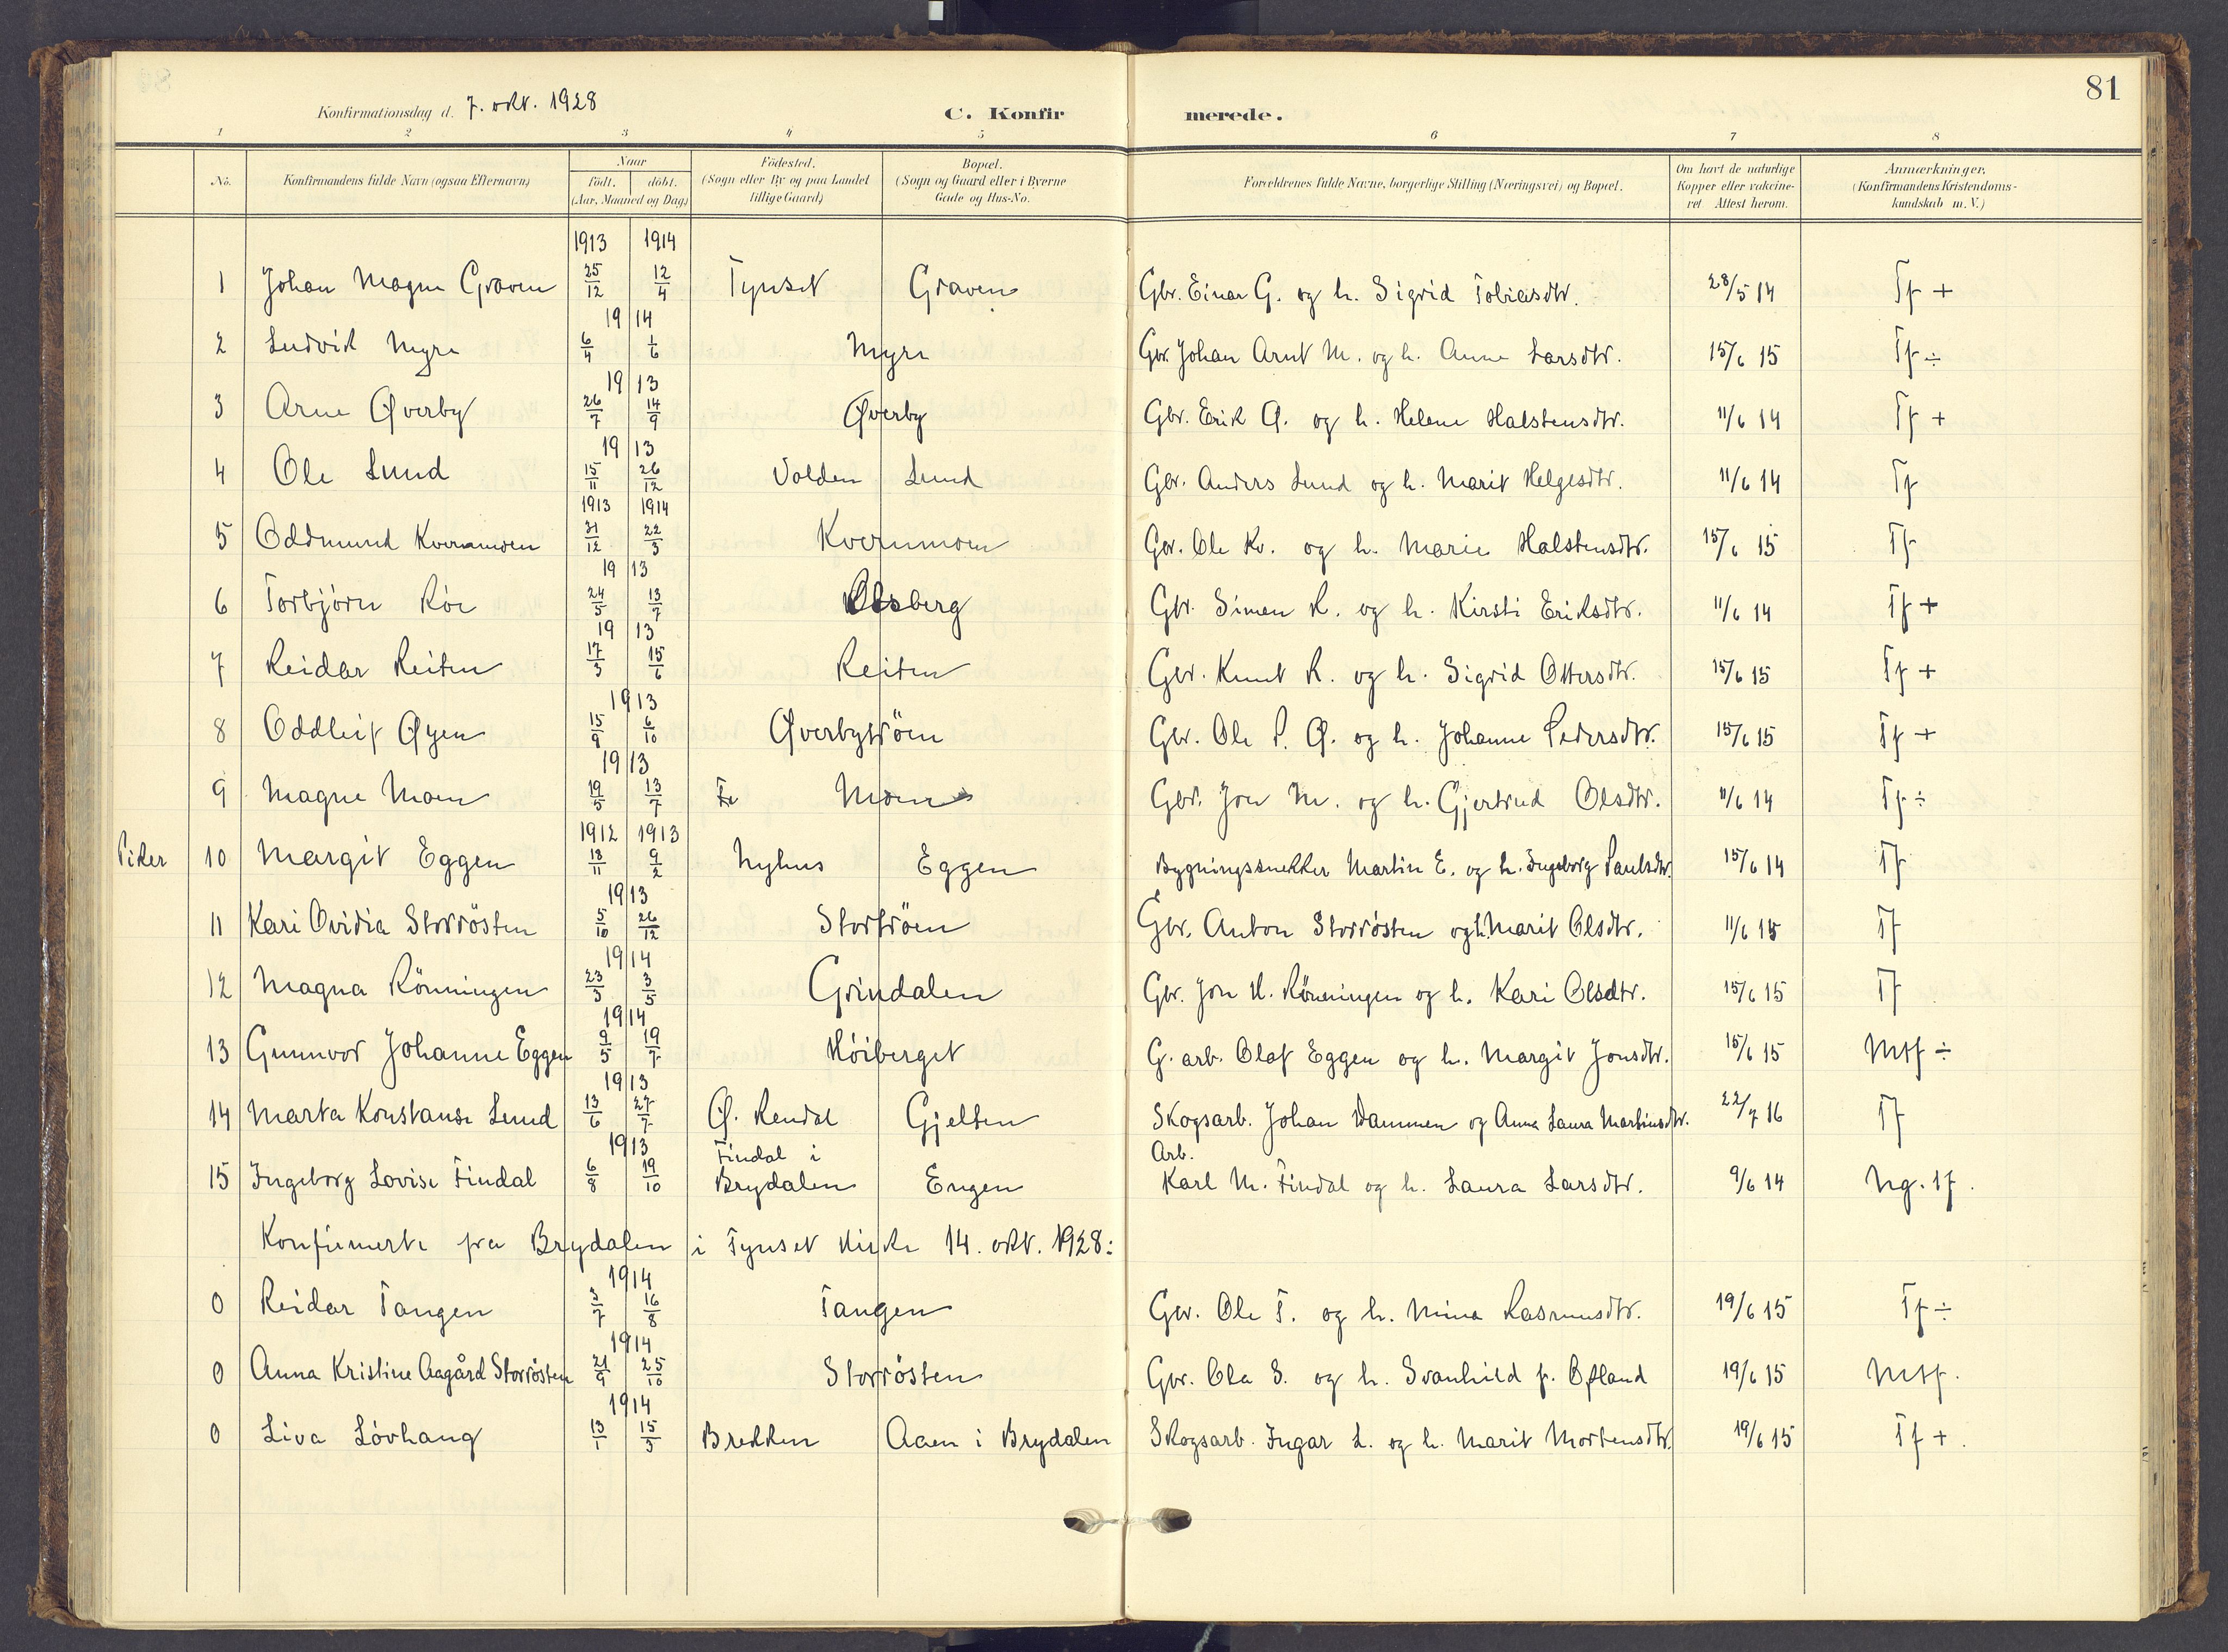 81
Konfirmationsdag d. 7. okt. 1928 C. Konfirmerede.
1 2 3 4 5 6 7 8
No. Konfirmandens fulde Navn (ogsaa Efternavn) Naar født. døbt. (Aar, Maaned og Dag) Fødested. (Sogn eller By og paa Landet tillige Gaard) Bopæl. (Sogn og Gaard eller i Byerne Gade og Hus-No. Forældrenes fulde Navne, borgerlige Stilling (Næringsvei) og Bopæl. Om havt de naturlige Kopper eller vakcineret. Attest herom. Anmærkninger. (Konfirmandens Kristendomskundskab m. V.)
1913 1914
1 Johan Magne Graven 25/12 12/4 Tynset Graven Gbr. Einar G. og h. Sigrid Tobiasdtr. 28/5 14 Tf +
1914
2 Ludvik Myre 6/4 1/6 Myre Gbr. Johan Arnt M. og h. Anne Larsdtr. 15/6 15 Tf ÷
1913
3 Arne Øverby 26/7 14/9 Øverby Gbr. Erik Ø. og h. Helene Halstensdtr. 11/6 14 Tf +
1913
4 Ole Lund 15/11 26/12 Volden Lund Gbr. Anders Lund og h. Marit Helgesdtr. 11/6 14 Tf
1913 1914
5 Oddmund Kvernmoen 31/12 22/3 Kvernmoen Gbr. Ole Kv. og h. Marie Halstensdtr. 15/6 15 Tf
1913
6 Torbjörn Röe 24/5 13/7 Gbr. Simen R. og h. Kirsti Eriksdtr. 11/6 14 Tf +
1913
7 Reidar Reiten 17/3 15/6 Reiten Gbr. Knut R. og h. Sigrid Ottersdtr. 15/6 15 Tf +
1913
8 Oddleif Øyen 15/9 6/10 Øverbytröen Gbr. Ole P. Ø. og h. Johanne Pedersdtr. 15/6 15 Tf +
1913
9 Magne Moen 19/5 13/7 Moen Gbr. Jon M. og h. Gjertrud Olsdtr. 11/6 14 Tf ÷
1912 1913
Piker 10 Margit Eggen 18/11 9/2 Nyhus Eggen Bygningssnekker Martin E. og h. Ingeborg Paulsdtr. 15/6 14 Tf
1913
11 Kari Ovidia Storrösten 5/10 26/12 Stortröen Gbr. Anton Storrösten og h. Marit Olsdtr. 11/6 15 Tf
1914
12 Magna Rönningen 23/3 3/5 Grindalen Gbr. Jon K. Rönningen og h. Kari Olsdtr. 15/6 15 Tf
1914
13 Gunnvor Johanne Eggen 9/5 19/7 Höiberget G. arb. Olaf Eggen og h. Margit Jonsdtr. 15/6 15 Mtf ÷
1913
14 Marta Konstanse Lund 13/6 27/7 Ø. Rendal Gjelten Skogsarb. Johan Dammen og Anna Laura Martinsdtr. 22/7 16 Tf
1913 Findal i Arb.
15 Ingeborg Lovise Findal 6/8 19/10 Brydalen Engen Karl M. Findal og h. Laura Larsdtr. 9/6 14 Ng. tf.
Konfirmerte fra Brydalen i Tynset Kirke 14. okt. 1928:
1914
0 Reidar Tangen 3/7 16/8 Tangen Gbr. Ole T. og h. Mina Rasmusdtr. 19/6 15 Tf ÷
1914
0 Anna Kristine Aagård Storrösten 21/9 25/10 Storrösten Gbr. Ola S. og h. Svanhild f. Öfland 19/6 15 Mtf.
1914
0 Liva Lövhaug 13/1 15/3 Brekken Aaen i Brydalen Skogsarb. Ingar L. og h. Marit Mortensdtr. 19/6 15 Tf +.